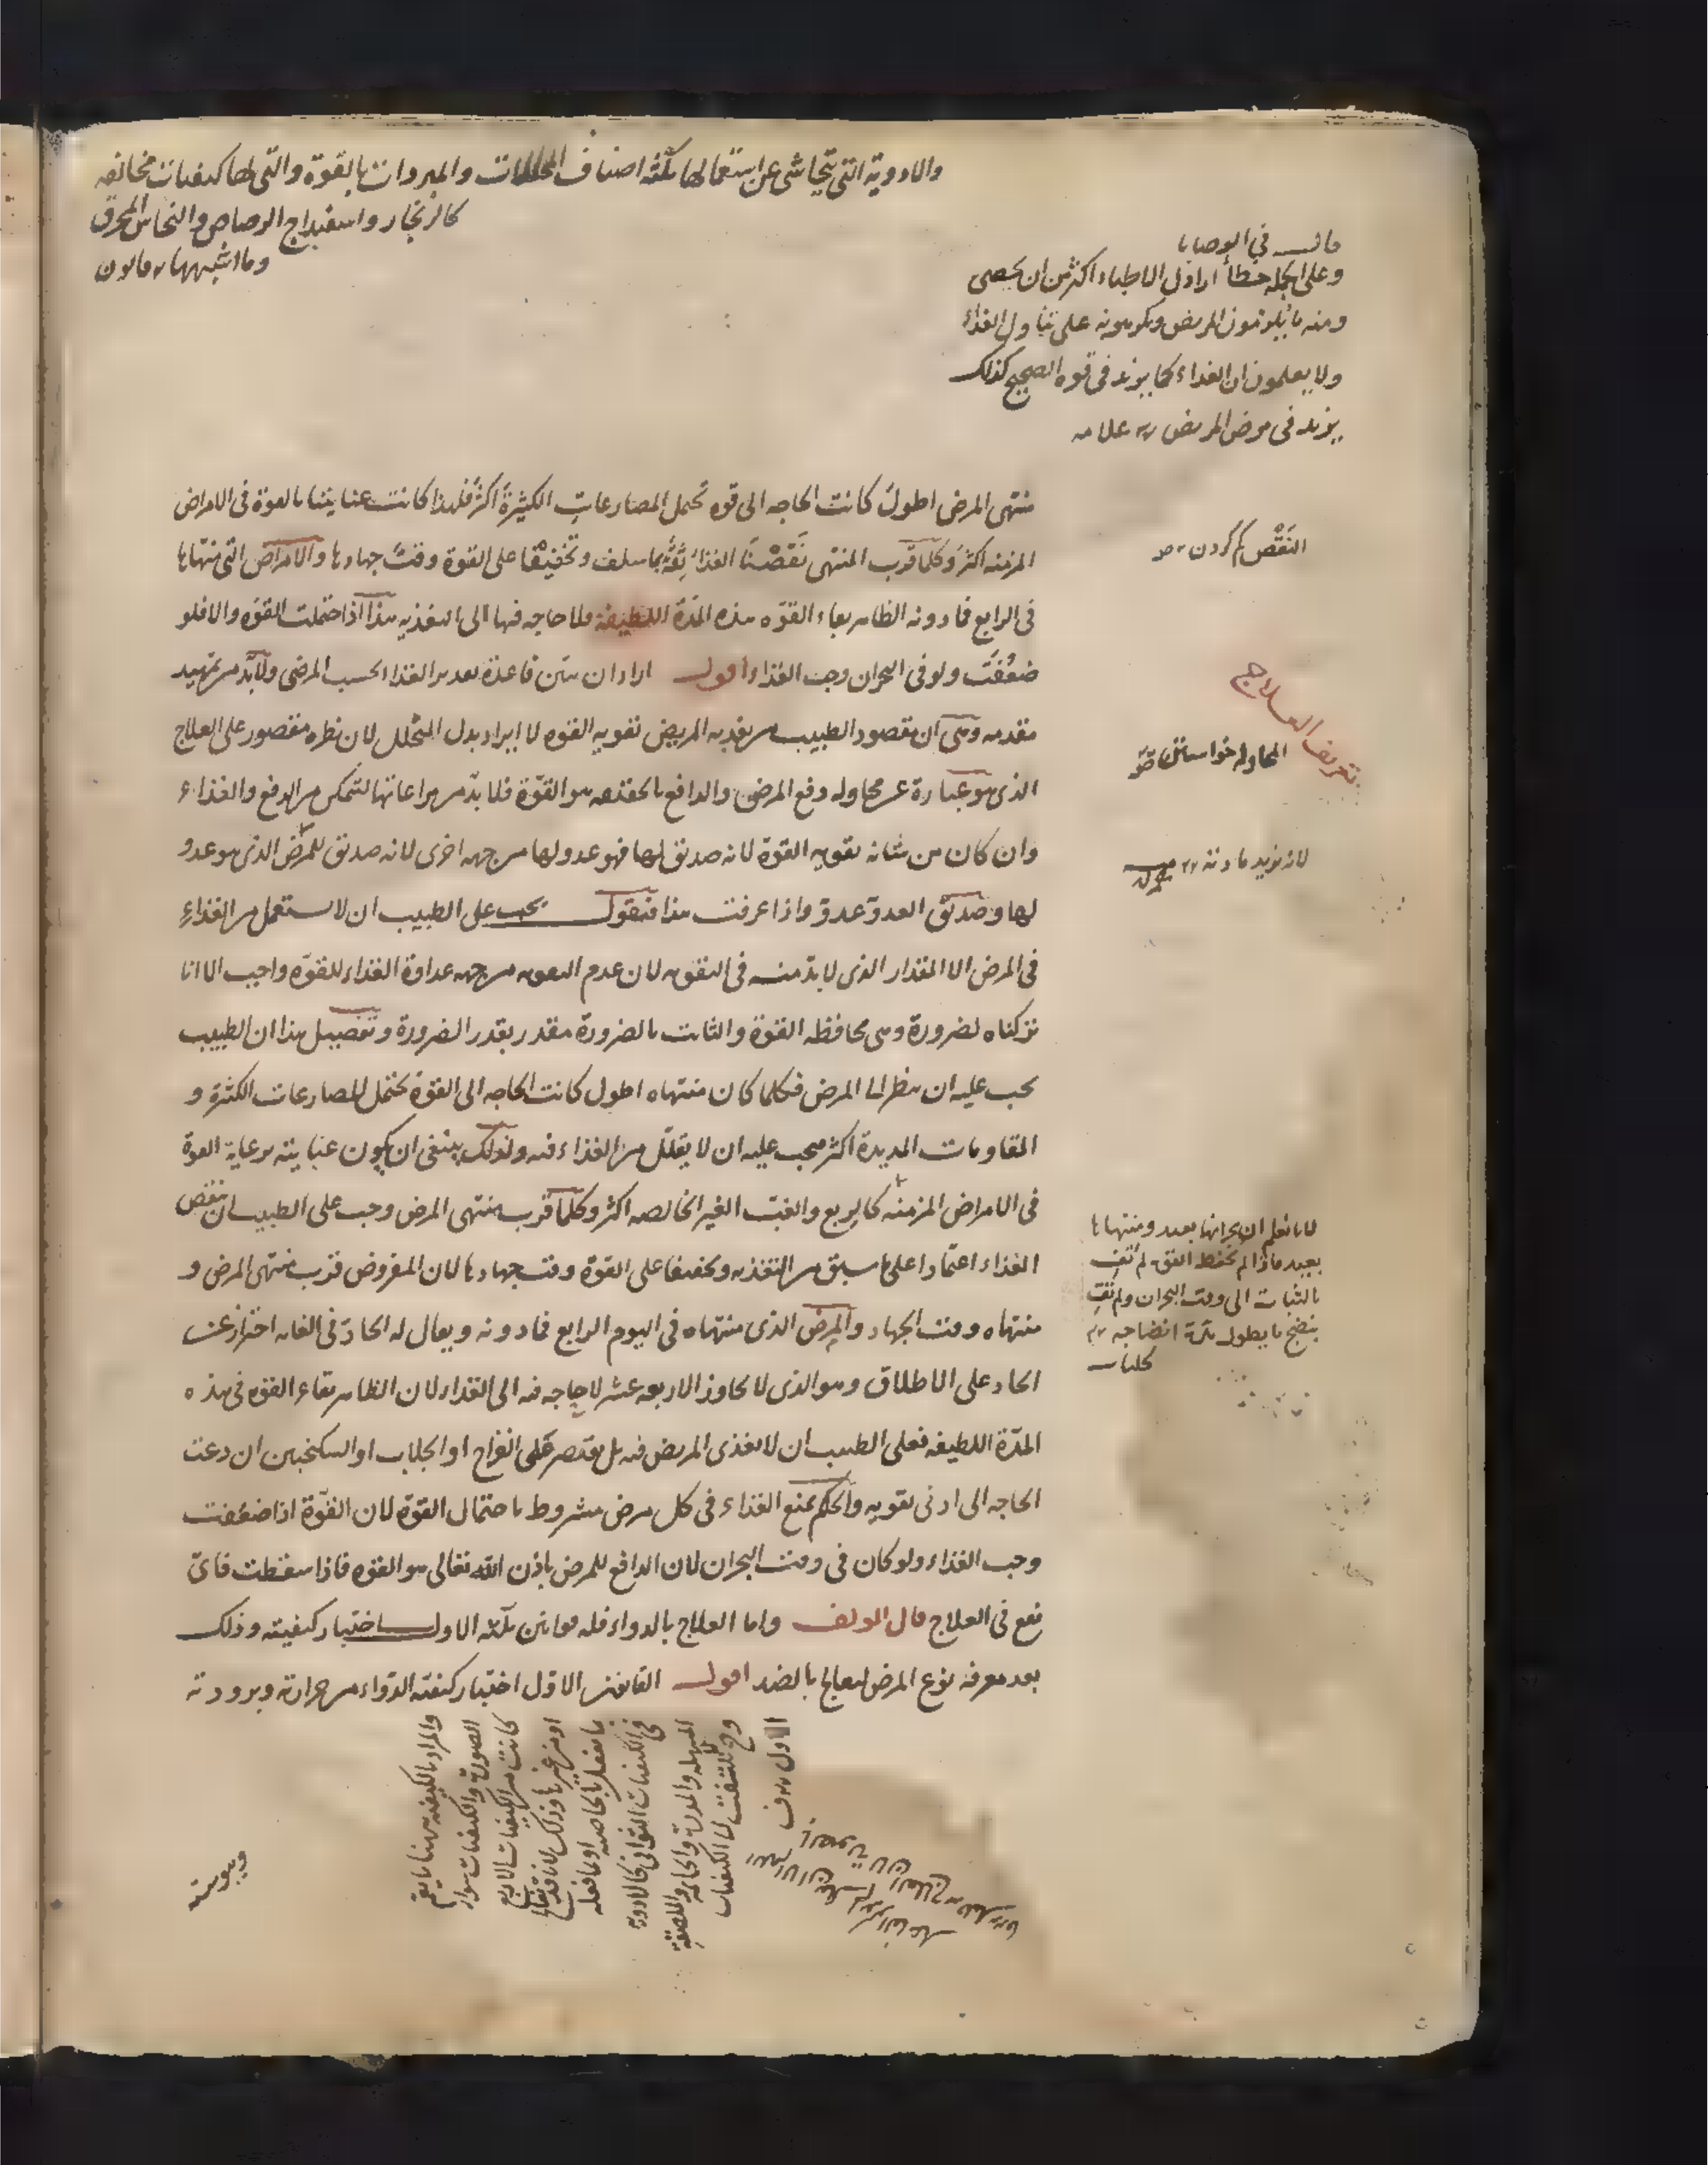 والادوية التى يتحاشى عن استعمالها ثلثة اصناف المحللات والمبردات بالقوة والتى لها كيفيات مخالفه
كالزنجار واسفيداج الرصاص والنحاس المحرق
وما اشبهها قانون
قال فى الوصايا
وعلى الجمله خطأ اراذل الاطباء اكثر من ان يحصى
ومنه ما يلزمون المريض ويكرهونه على تناول الغذاء
ولا يعلمون ان الغذاء كما يزيد فى قوه الصحيح كذلك
يزيد فى مرض المريض علامه
منتهى المرض اطول كانت الحاجه الى قوه تحمل المصارعات الكثيرة اكثر فلهذا كانت عنايتنا بالقوة فى الامراض
المزمنه اكثر وكلما قرب المنتهى نقصنا الغذاء ثقة بما سلف وتخفيفا على القوة وقت جهادها والامراض التى منتهاها
فى الرابع فما دونه الظاهر بقاء القوه هذه المدة اللطيفة فلا حاجه فيها الى التغذيه هذا اذا احتملت القوه والا فلو
ضعفت ولو فى البحران وجب الغذاء اقول اراد ان يبين قاعدة تقدير الغذاء بحسب المرض ولابد من تمهيد
مقدمه وهى ان مقصود الطبيب من تغذيه المريض تقويه القوه لا ايراد بدل المتحلل لان نظره مقصور على العلاج
الذى هو عبارة عن محاوله دفع المرض والدافع بالحقيقه هو القوة فلا بد من مراعاتها لتتمكن من الدفع والغذاء
وان كان من شانه تقويه القوة لانه صديق لها فهو عدو لها من جهه اخرى لانه صديق للمرض الذى هو عدو
لها وصديق العدو عدو واذا عرفت هذا فنقول يجب على الطبيب ان لا يستعمل من الغذاء
فى المرض الا المقدار الذى لا بد منه فى التقويه لان عدم التقويه من جهه عداوة الغذاء للقوه واجب الا انا
تركناه لضرورة وهى محافظه القوة والثابت بالضرورة مقدر بقدر الضرورة وتفصيل هذا ان الطبيب
يجب عليه ان ينظر الى المرض فكلما كان منتهاه اطول كانت الحاجه الى القوة لتحمل المصارعات الكثيرة و
المقاومات المديدة اكثر فيجب عليه ان لا يقلل من الغذاء فيه ولذلك ينبغى ان يكون عنايته برعاية القوة
فى الامراض المزمنه كالربع والغب الغير الخالصه اكثر وكلما قرب منتهى المرض وجب على الطبيب ان ينقص
الغذاء اعتمادا على ما سبق من التغذيه وتخفيفا على القوة وقت جهادها لان المفروض قرب منتهى المرض و
منتهاه وقت الجهاد والمرض الذى منتهاه فى اليوم الرابع فما دونه ويقال له الحاد فى الغايه احترازا عن
الحاد على الاطلاق وهو الذى لا يجاوز الاربعه عشر لا حاجه فيه الى الغذاء لان الظاهر بقاء القوه فى هذه
المدة اللطيفه فعلى الطبيب ان لا يغذى المريض فيه بل يقتصر على القراح او الجلاب او السكنجبين ان دعت
الحاجه الى ادنى تقويه والحكم بمنع الغذاء فى كل مرض مشروط باحتمال القوة لان القوة اذا ضعفت
وجب الغذاء ولو كان فى وقت البحران لان الدافع للمرض باذن الله تعالى هو القوه فاذا سقطت فاى
نفع فى العلاج قال المولف واما العلاج بالدواء فله قوانين ثلثه الاول اختيار كيفيته وذلك
بعد معرفه نوع المرض ليعالج بالضد اقول القانون الاول اختيار كيفيته الدواء من حرارته وبرودته
ويبوسته
النقص كم كردن
تعريف العلاج
المحاوله خواستن
لانه يزيد مادته
لانا نعلم ان بحرانها بعيد ومنتهاها
بعيد فاذا لم تحفظ القوه لم تف
بالثبات الى وقت البحران ولم تف
بنضج ما يطول مدة انضاجه
كليات
والمراد بالكيفيه ههنا ما يعم
الصورة والكيفيات سواء
كانت من الكيفيات الاربع
او من غيرها وذلك لانا قد نعالج
ما نفعل بالخاصه
فى الكيفيات الثوانى كالادويه
المسهله والمدرة
الاول